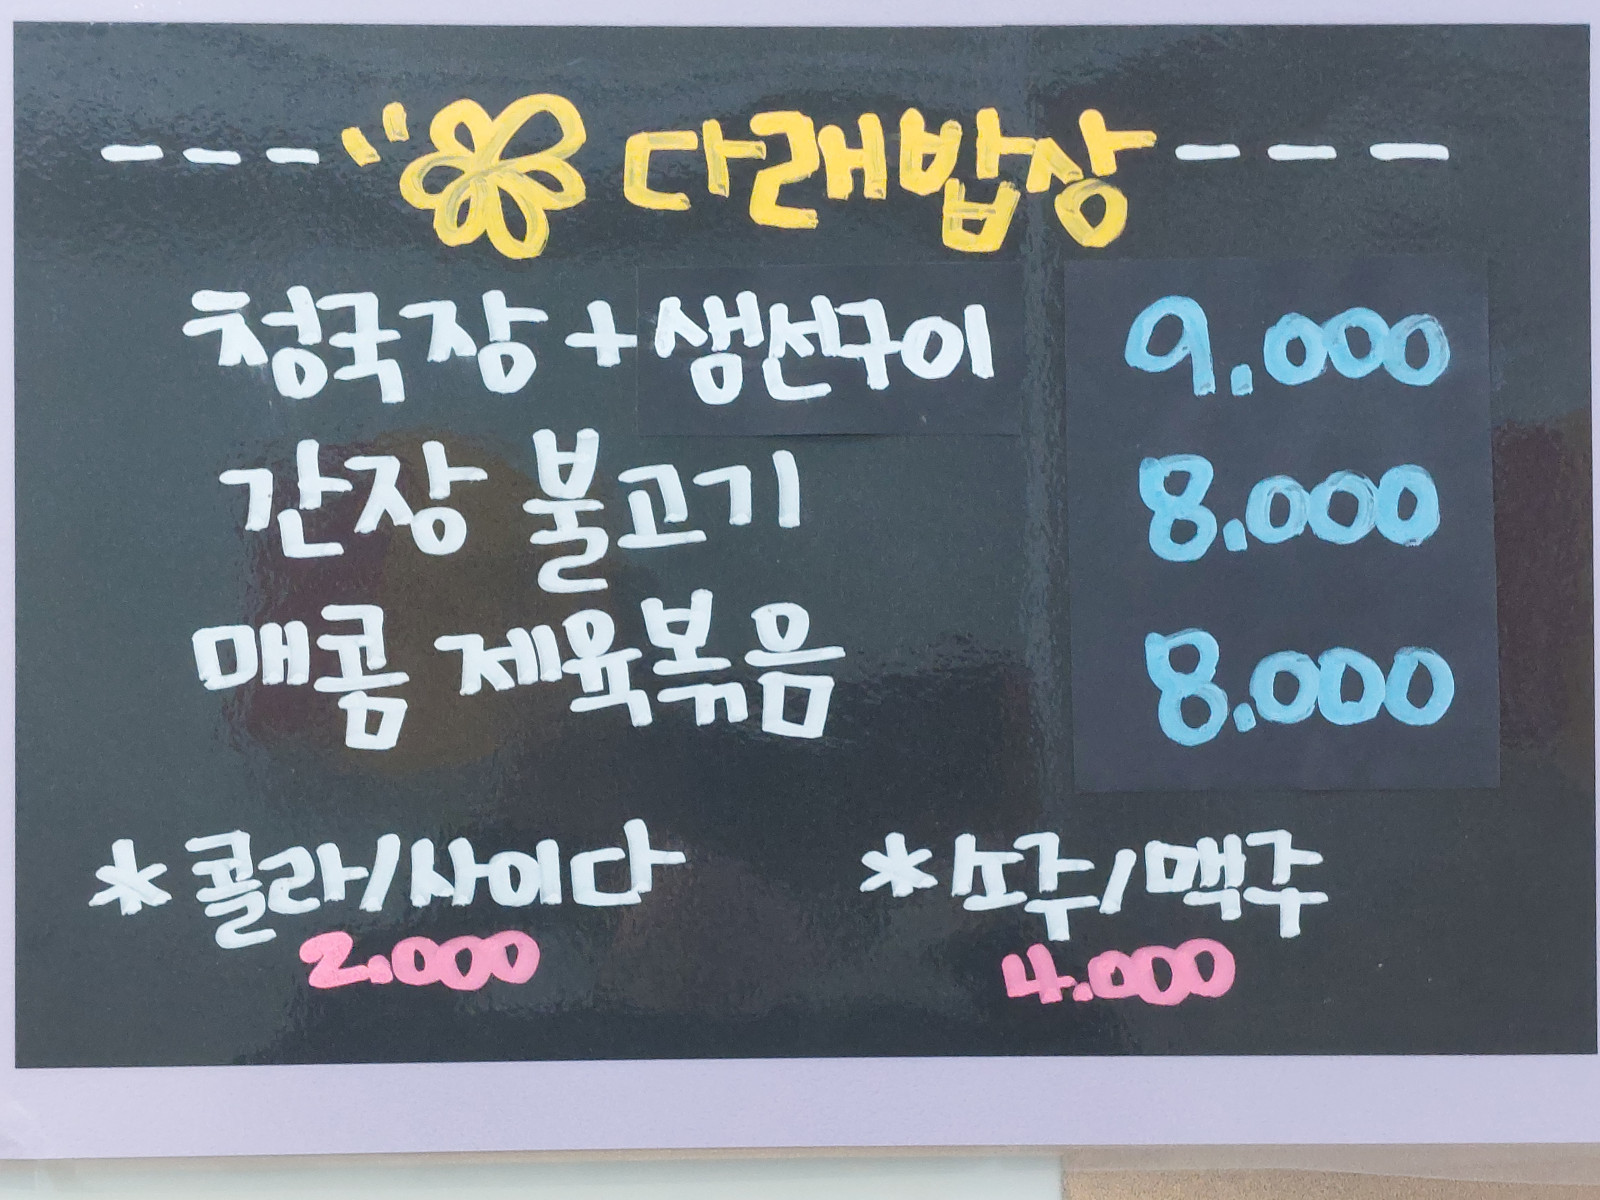 다래밥상
청국장 + 생선구이 9.000
간장 불고기 8.000
매콤 제육볶음 8.000
* 콜라/사이다 * 소주/맥주
2.000 4.000